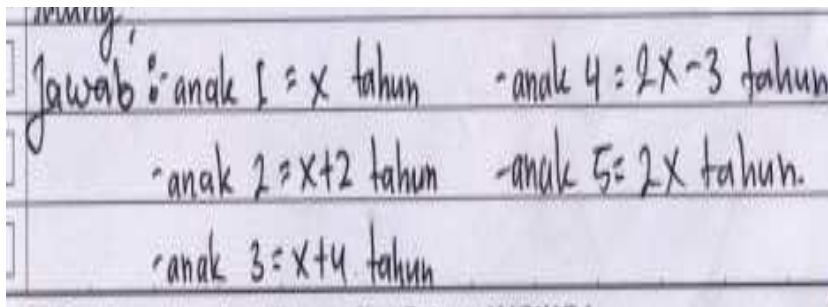 Jawab : - anak 1 = x tahun - anak 4 = 2x - 3 tahun
- anak 2 = x+2 tahun - anak 5 = 2x tahun.
- anak 3 = x+4 tahun